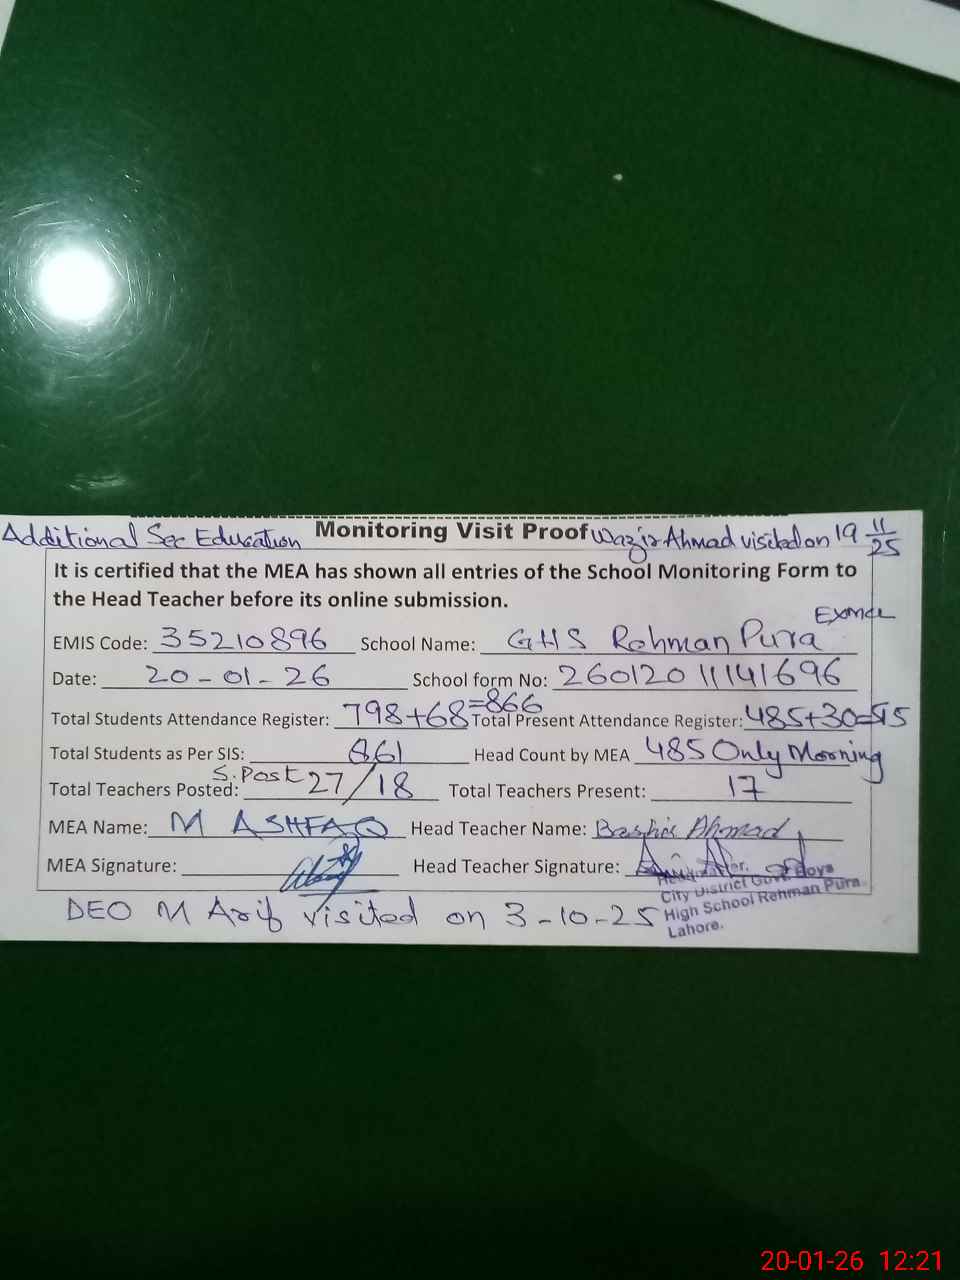 Additional Sec Education Monitoring Visit Proof Wazir Ahmad visited on 19 11/25
It is certified that the MEA has shown all entries of the School Monitoring Form to
the Head Teacher before its online submission.
EMIS Code: 35210896 School Name: GHS Rehman Pura
Date: 20-01-26 School form No: 26012011141696
Total Students Attendance Register: 798+68=866 Total Present Attendance Register: 485+30=515
Total Students as Per SIS: 861 Head Count by MEA 485 Only Morning
Total Teachers Posted: S.Post 27/18 Total Teachers Present: 17
MEA Name: M ASHFAQ Head Teacher Name: Bashir Ahmad
MEA Signature: Head Teacher Signature:
City District Govt. Boys
High School Rehman Pura
Lahore.
DEO M Arif visited on 3-10-25
20-01-26 12:21